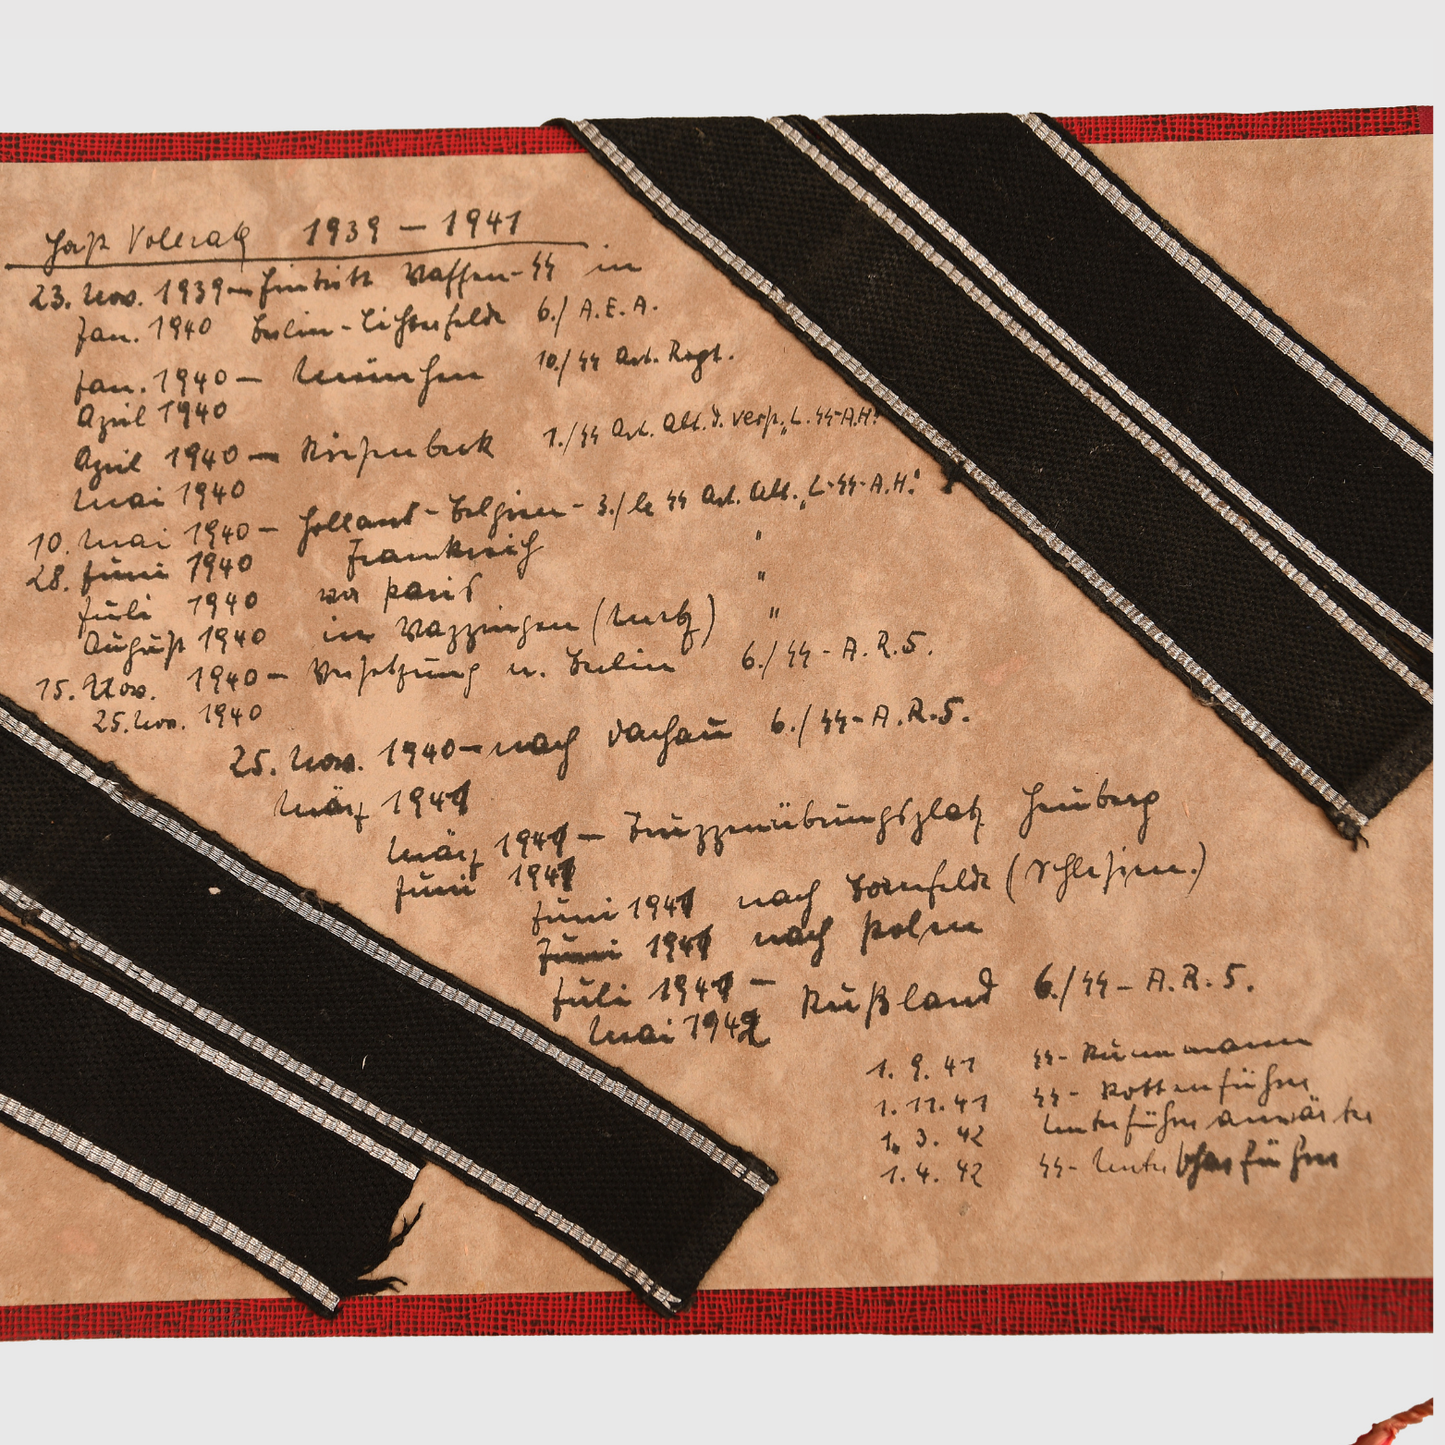 1939 – 1941
23. Nov. 1939 – Eintritt Waffen-SS in
Jan. 1940 Berlin-Lichterfelde 6./ A.E.A.
Jan. 1940 – München 10./ SS Art. Regt.
April 1940
April 1940 – 1./SS Art. Abt. d. Verf. „L.-SS-A.H."
Mai 1940
10. Mai 1940 – Holland-Belgien - 3./ le SS Art. Abt. „L-SS-A.H."
28. Juni 1940 Frankreich "
Juli 1940 vor Paris "
August 1940 in Wappingen (Metz) "
15. Nov. 1940 – Versetzung n. Berlin 6./ SS-A.R.5.
25. Nov. 1940
25. Nov. 1940 – nach Dachau 6./ SS-A.R.5.
März 1941
März 1941 – Truppenübungsplatz Heuberg
Juni 1941
Juni 1941 nach (Schlesien.)
Juni 1941 nach Polen
Juli 1941 – Rußland 6./SS-A.R.5.
Mai 1942
1. 9. 41 SS-
1. 11. 41 SS-Rottenführer
1. 3. 42 Unterführeranwärter
1. 4. 42 SS-Unterscharführer